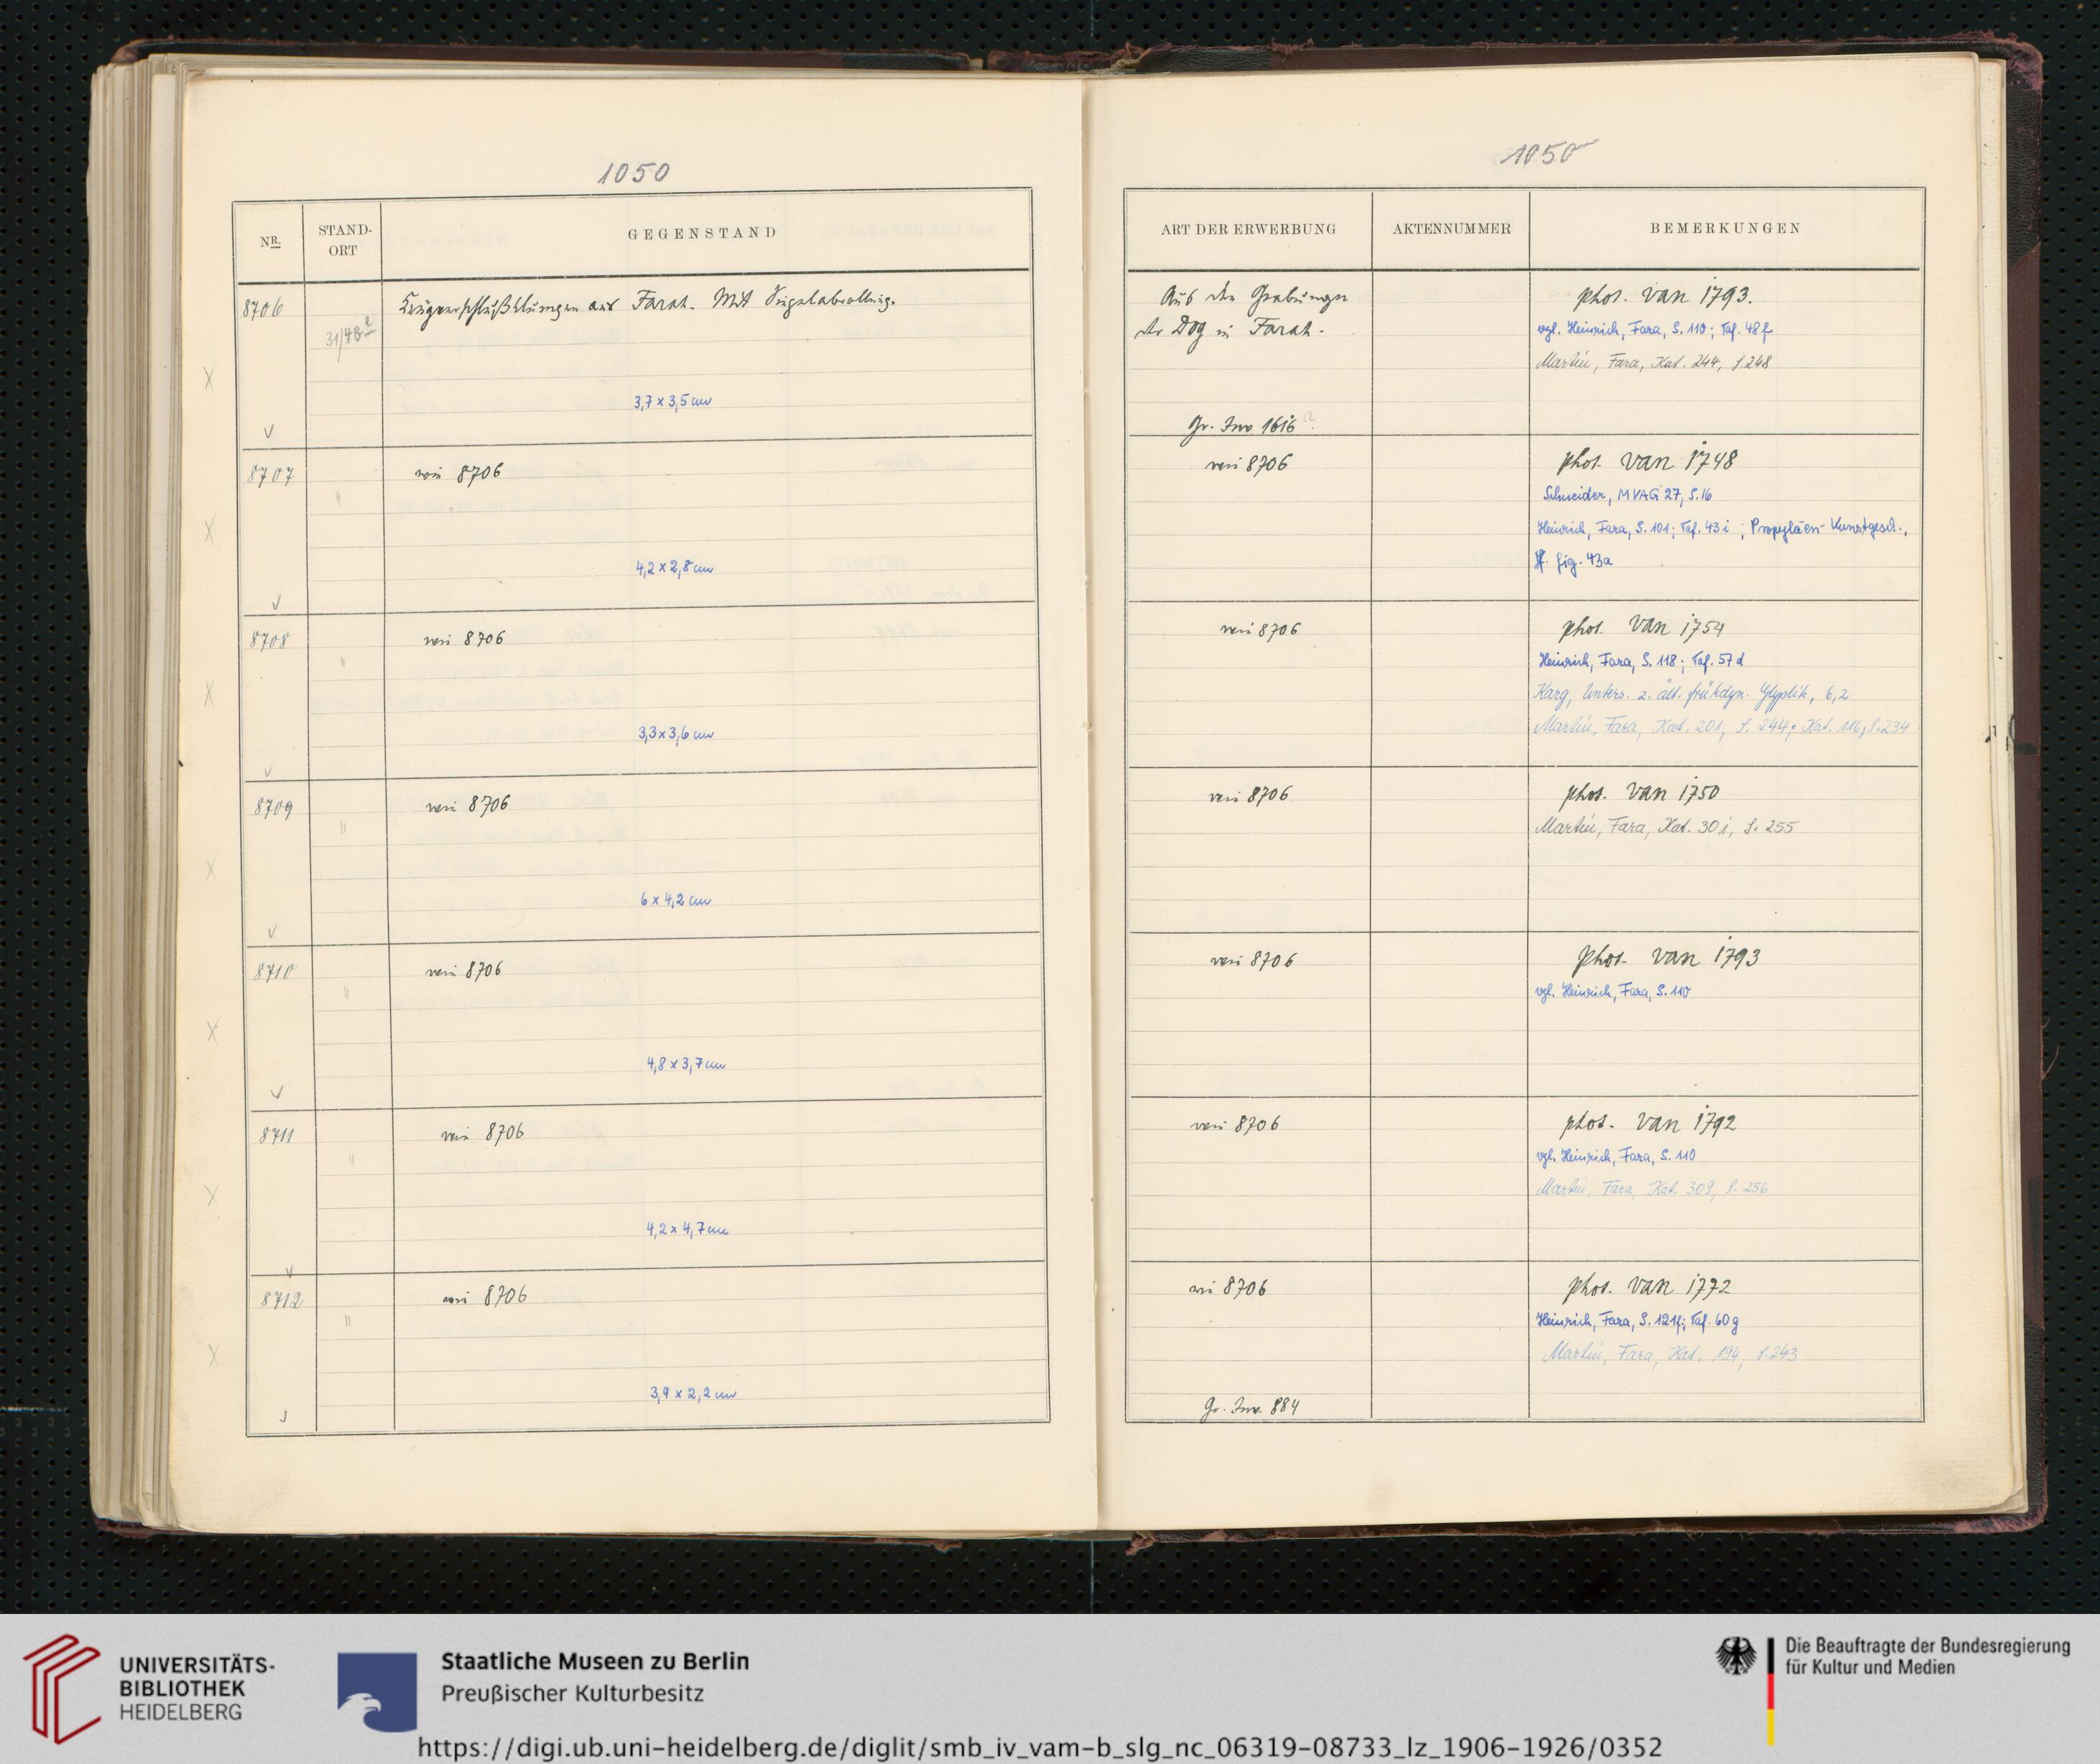 1050
NR.
STAND-
ORT
GEGENSTAND
8706
31/78
Krugverschlußklumpen aus Farah. Mit Siegelabrollung.
3,7 x 3,5 cm
8707
"
wie 8706
4,2 x 2,8 cm
8708
"
wie 8706
3,3 x 3,6 cm
8709
"
wie 8706
6 x 4,2 cm
8710
"
wie 8706
4,8 x 3,7 cm
8711
"
wie 8706
4,2 x 4,7 cm
8712
"
wie 8706
3,9 x 2,2 cm
1050
ART DER ERWERBUNG
AKTENNUMMER
BEMERKUNGEN
Aus den Grabungen
der DOG in Farah.
Gr. Inv 1616 ?
phot. Van 1793.
vgl. Heinrich, Fara, S. 110; Taf. 48 f
Martin, Fara, Kat. 244, S. 248
wie 8706
phot. Van 1748
Schneider, MVAG 27, S. 16
Heinrich, Fara, S. 101; Taf. 43 i ; Propyläen-Kunstgesch.,
fig. 43a
wie 8706
phot. Van 1754
Heinrich, Fara, S. 118; Taf. 57 d
Karg, Unters. z. ält. frühdyn. Glyptik, 6,2
Martin, Fara, Kat. 201, S. 244; Kat. 116, S. 234
wie 8706
phot. Van 1750
Martin, Fara, Kat. 301, S. 255
wie 8706
phot. Van 1793
vgl. Heinrich, Fara, S. 110
wie 8706
phot. Van 1792
vgl. Heinrich, Fara, S. 110
Martin, Fara, Kat. 309, S. 256
wie 8706
Gr. Inv. 884
phot. Van 1772
Heinrich, Fara, S. 121f; Taf. 60 g
Martin, Fara, Kat. 194, S. 243
UNIVERSITÄTS-
BIBLIOTHEK
HEIDELBERG
Staatliche Museen zu Berlin
Preußischer Kulturbesitz
Die Beauftragte der Bundesregierung
für Kultur und Medien
https://digi.ub.uni-heidelberg.de/diglit/smb_iv_vam-b_slg_nc_06319-08733_lz_1906-1926/0352